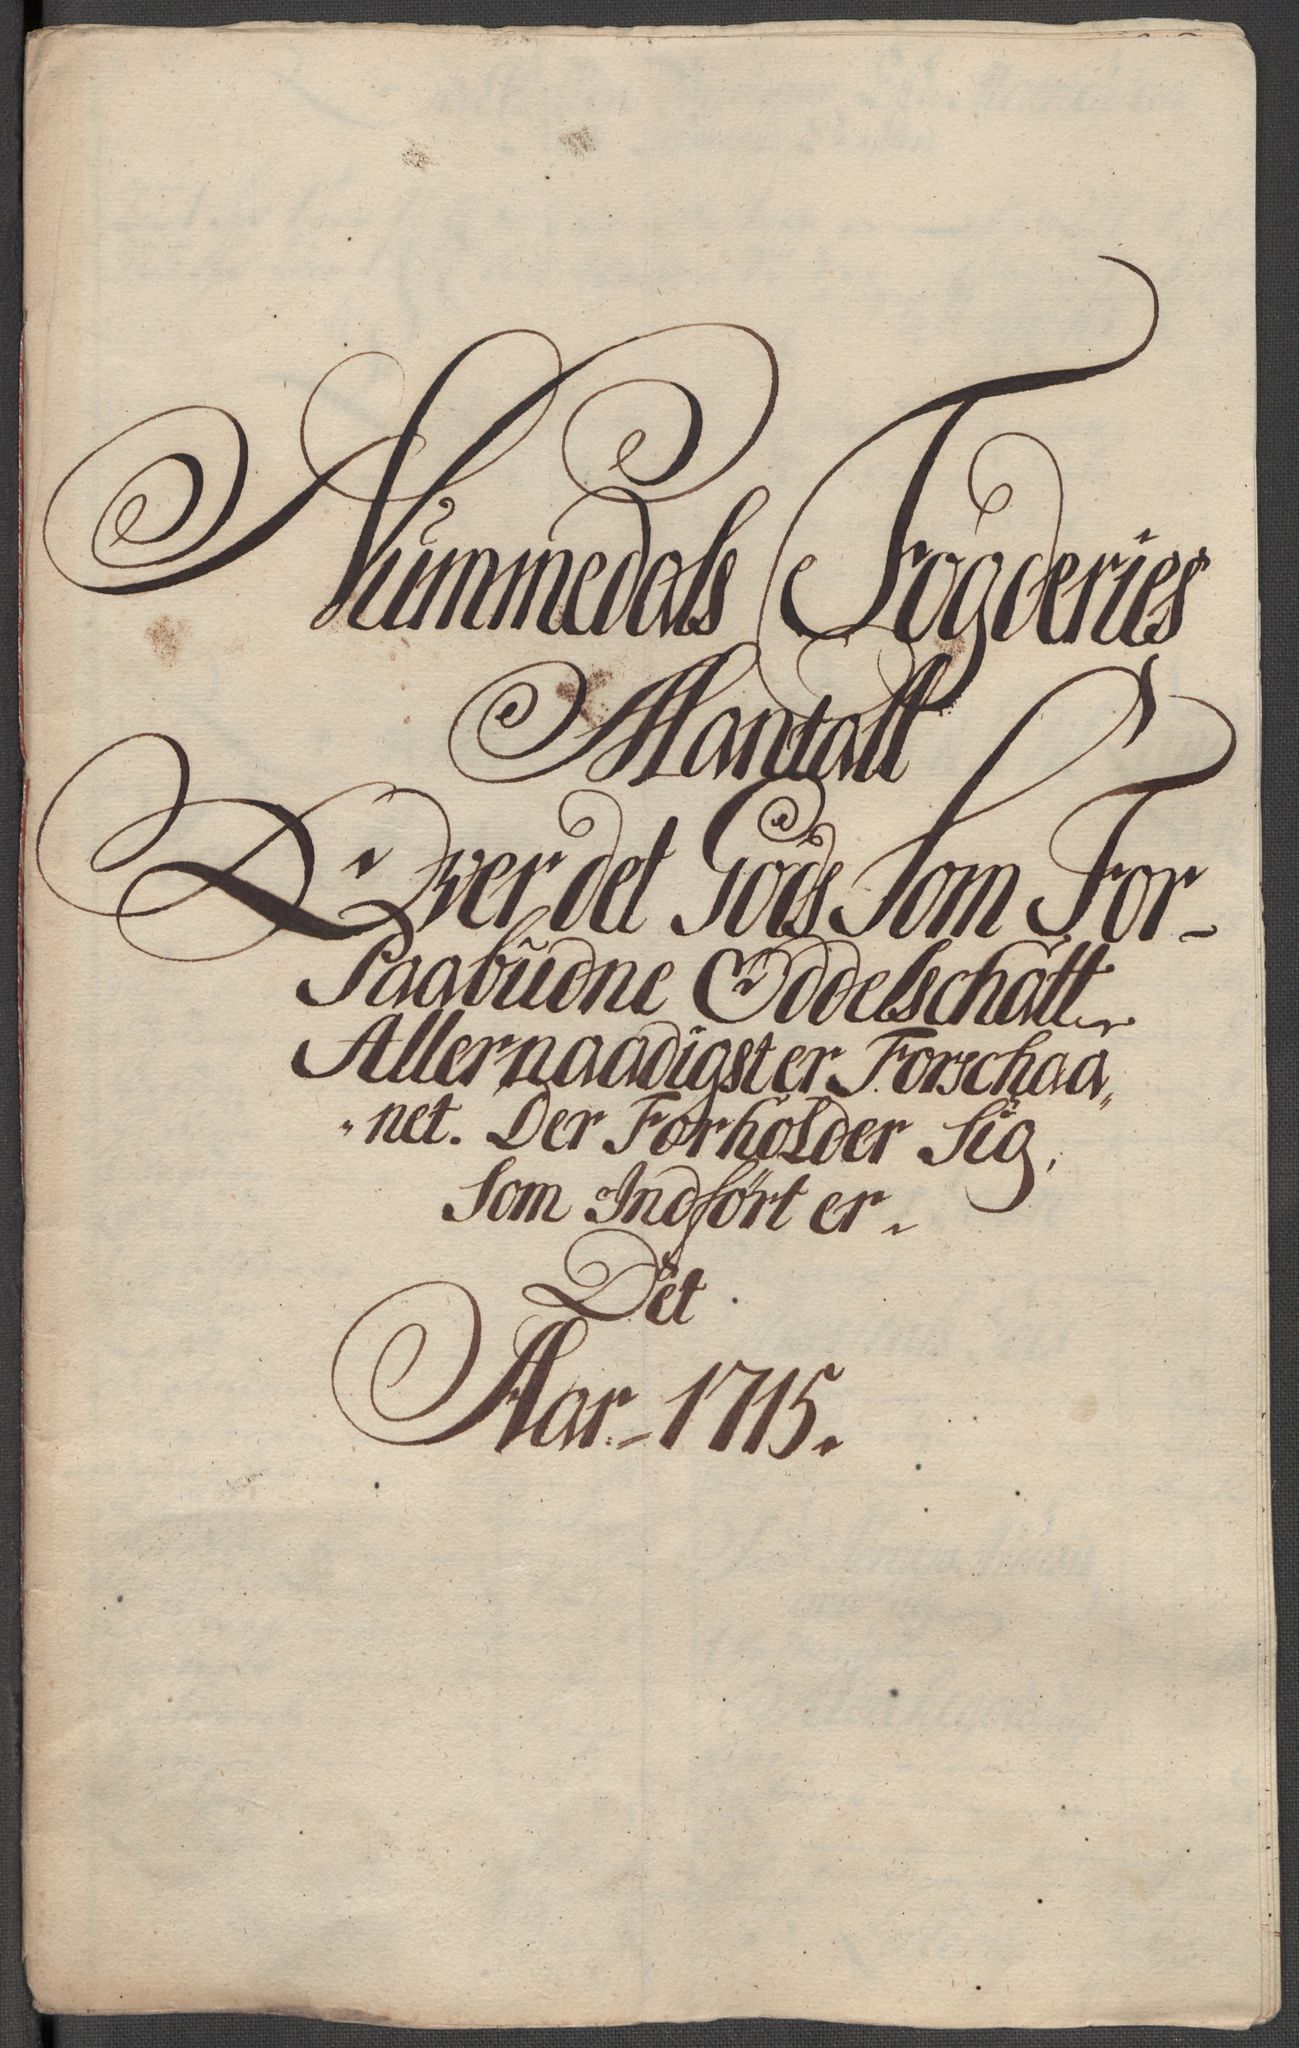 Nummedals Fogderies
Mantall
Over det Gods Som For-
Paabüdne Oddelschatt
Allernaadigster Forschaa„
„net. Der Forholder Sig,
Som Indført er.
Det
Aar. 1715.